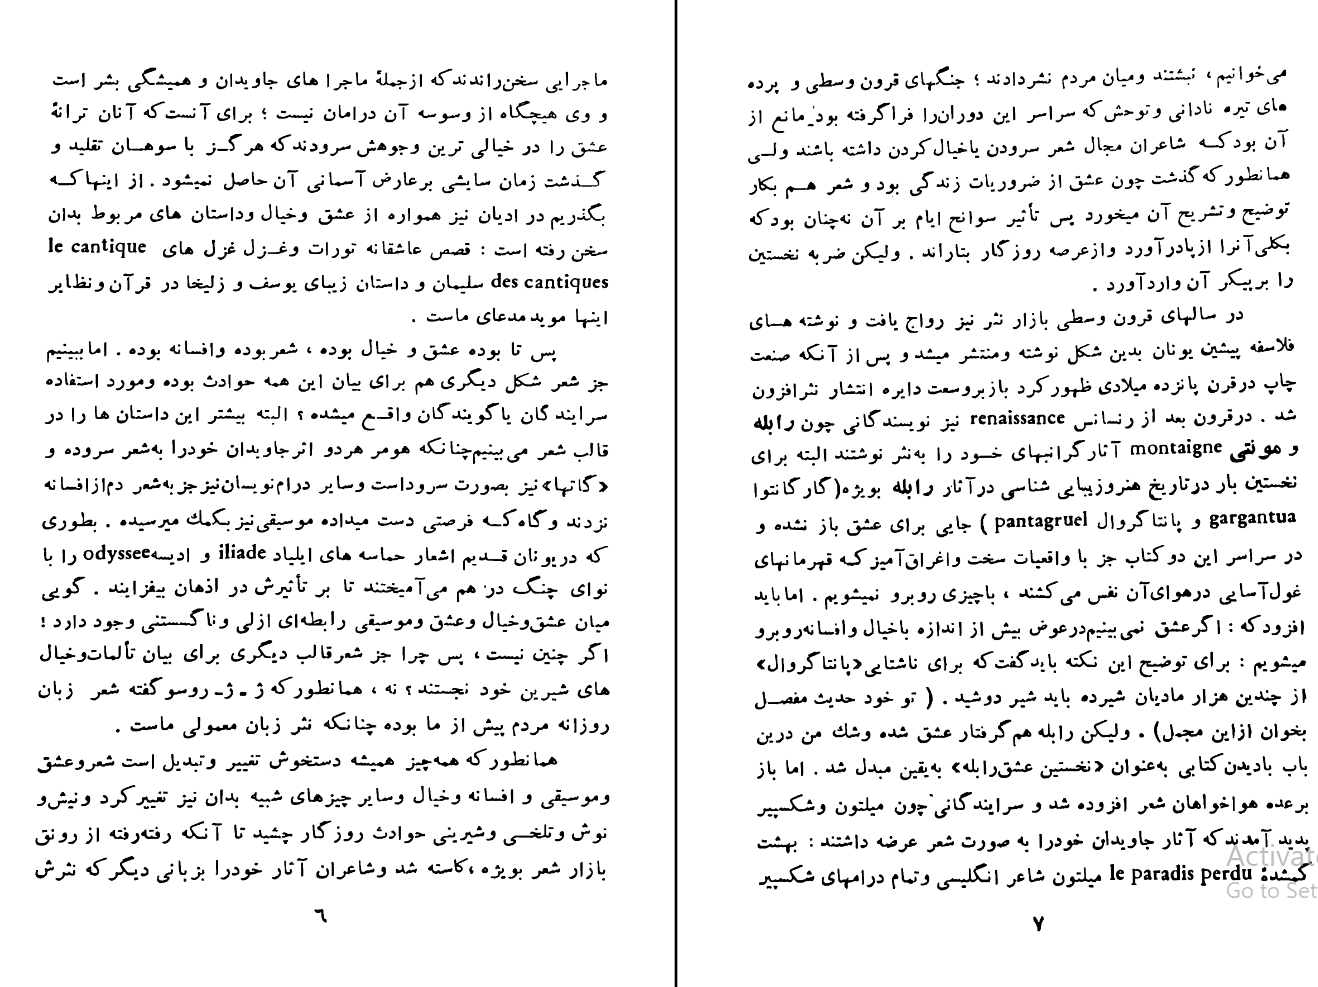 ماجرایی سخن‌راندندکه ازجملهٔ ماجرا های جاویدان و همیشگی بشر است
و وی هیچگاه از وسوسه آن درامان نیست ؛ برای آنست‌که آنان ترانهٔ
عشق را در خیالی ترین وجوهش سرودندکه هرگز با سوهان تقلید و
گذشت زمان سایشی برعارض آسمانی آن حاصل نمیشود . از اینهاکه
بگذریم در ادیان نیز همواره از عشق وخیال وداستان های مربوط بدان
سخن رفته است : قصص عاشقانه تورات وغزل غزل های le cantique
des cantiques سلیمان و داستان زیبای یوسف و زلیخا در قرآن ونظایر
اینها مویدمدعای ماست .
پس تا بوده عشق و خیال بوده ، شعربوده وافسانه بوده . اماببینیم
جز شعر شکل دیگری هم برای بیان این همه حوادث بوده ومورد استفاده
سرایندگان یاگویندگان واقع میشده ؟ البته بیشتر این داستان ها را در
قالب شعر می‌بینیم‌چنانکه هومر هردو اثرجاویدان خودرا به‌شعر سروده و
«گاتها» نیز بصورت سروداست وسایر درام‌نویسان‌نیزجزبه‌شعر دم‌ازافسانه
نزدند وگاه‌که فرصتی دست میداده موسیقی‌نیزبکمك میرسیده . بطوری
که دریونان قدیم اشعار حماسه های ایلیاد iliade و ادیسهodyssee را با
نوای چنگ در هم می‌آمیختند تا بر تأثیرش در اذهان بیفزایند . گویی
میان عشق‌وخیال وعشق وموسیقی رابطه‌ای ازلی وناگستنی وجود دارد !
اگر چنین نیست ، پس چرا جز شعرقالب دیگری برای بیان تألمات‌وخیال
های شیرین خود نجستند ؟ نه ، همانطورکه ژ ـ ژـ روسوگفته شعر زبان
روزانه مردم پیش از ما بوده چنانکه نثر زبان معمولی ماست .
همانطور که همه‌چیز همیشه دستخوش تغییر وتبدیل است شعروعشق
وموسیقی و افسانه وخیال وسایر چیزهای شبیه بدان نیز تغییرکرد ونیش‌و
نوش وتلخی وشیرینی حوادث روزگار چشید تا آنکه رفته‌رفته از رونق
بازار شعر بویژه ،کاسته شد وشاعران آثار خودرا بزبانی دیگرکه نثرش
٦
می‌خوانیم ، نبشتند ومیان مردم نشردادند ؛ جنگهای قرون وسطی و پرده
های تیره نادانی وتوحش‌که سراسر این دوران‌را فراگرفته بود مانع از
آن بودکه شاعران مجال شعر سرودن یاخیال‌کردن داشته باشند ولی
همانطورکه‌گذشت چون عشق از ضروریات زندگی بود و شعر هم بکار
توضیح وتشریح آن میخورد پس تأثیر سوانح ایام بر آن نه‌چنان بودکه
بکلی‌آنرا ازپادرآورد وازعرصه روزگار بتاراند . ولیکن ضربه نخستین
را برپیکر آن واردآورد .
در سالهای قرون وسطی بازار نثر نیز رواج یافت و نوشته های
فلاسفه پیشین یونان بدین شکل نوشته ومنتشر میشد و پس از آنکه صنعت
چاپ درقرن پانزده میلادی ظهورکرد بازبروسعت دایره انتشار نثرافزون
شد . درقرون بعد از رنسانس renaissance نیز نویسندگانی چون رابله
و مونتی montaigne آثارگرانبهای خود را به‌نثر نوشتند البته برای
نخستین بار درتاریخ هنروزیبایی شناسی درآثار رابله بویژه(گارگانتوا
gargantua و پانتاگروال pantagruel ) جایی برای عشق باز نشده و
در سراسر این دوکتاب جز با واقعیات سخت واغراق‌آمیزکه قهرمانهای
غول‌آسایی درهوای‌آن نفس می‌کشند ، باچیزی روبرو نمیشویم . امابأید
افزودکه : اگرعشق نمی‌بینیم‌درعوض بیش از اندازه باخیال وافسانه‌روبرو
میشویم : برای توضیح این نکته بایدگفت‌که برای ناشتایی«پانتاگروال»
از چندین هزار مادیان شیرده باید شیر دوشید . ( تو خود حدیث مفصل
بخوان ازاین مجمل) . ولیکن رابله هم‌گرفتار عشق شده وشك من درین
باب بادیدن‌کتابی به‌عنوان «نخستین عشق‌رابله» به‌یقین مبدل شد . اما باز
برعده هواخواهان شعر افزوده شد و سرایندگانی چون میلتون وشکسپیر
پدید آمدندکه آثار جاویدان خودرا به صورت شعر عرضه داشتند : بهشت
گمشدهٔ le paradis perdu میلتون شاعر انگلیسی وتمام درامهای شکسپیر
٧
Activate
Go to Set